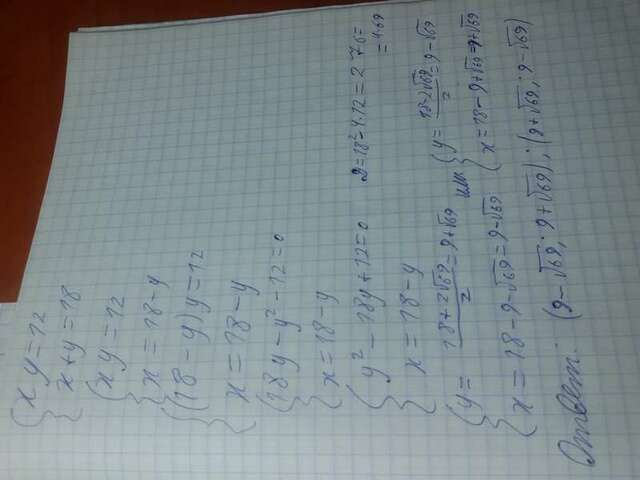 { xy = 12
x + y = 18
{ xy = 12
x = 18 - y
{ (18 - y) y = 12
x = 18 - y
{ 18y - y² - 12 = 0
x = 18 - y
{ y² - 18y + 12 = 0 D = 18² - 4·12 = 276 =
= 4·69
x = 18 - y
{ y = (18 + 2√69)/2 = 9 + √69 или { y = (18 - 2√69)/2 = 9 - √69
x = 18 - 9 - √69 = 9 - √69 x = 18 - 9 + √69 = 9 + √69
Ответ: (9 - √69; 9 + √69); (9 + √69; 9 - √69)